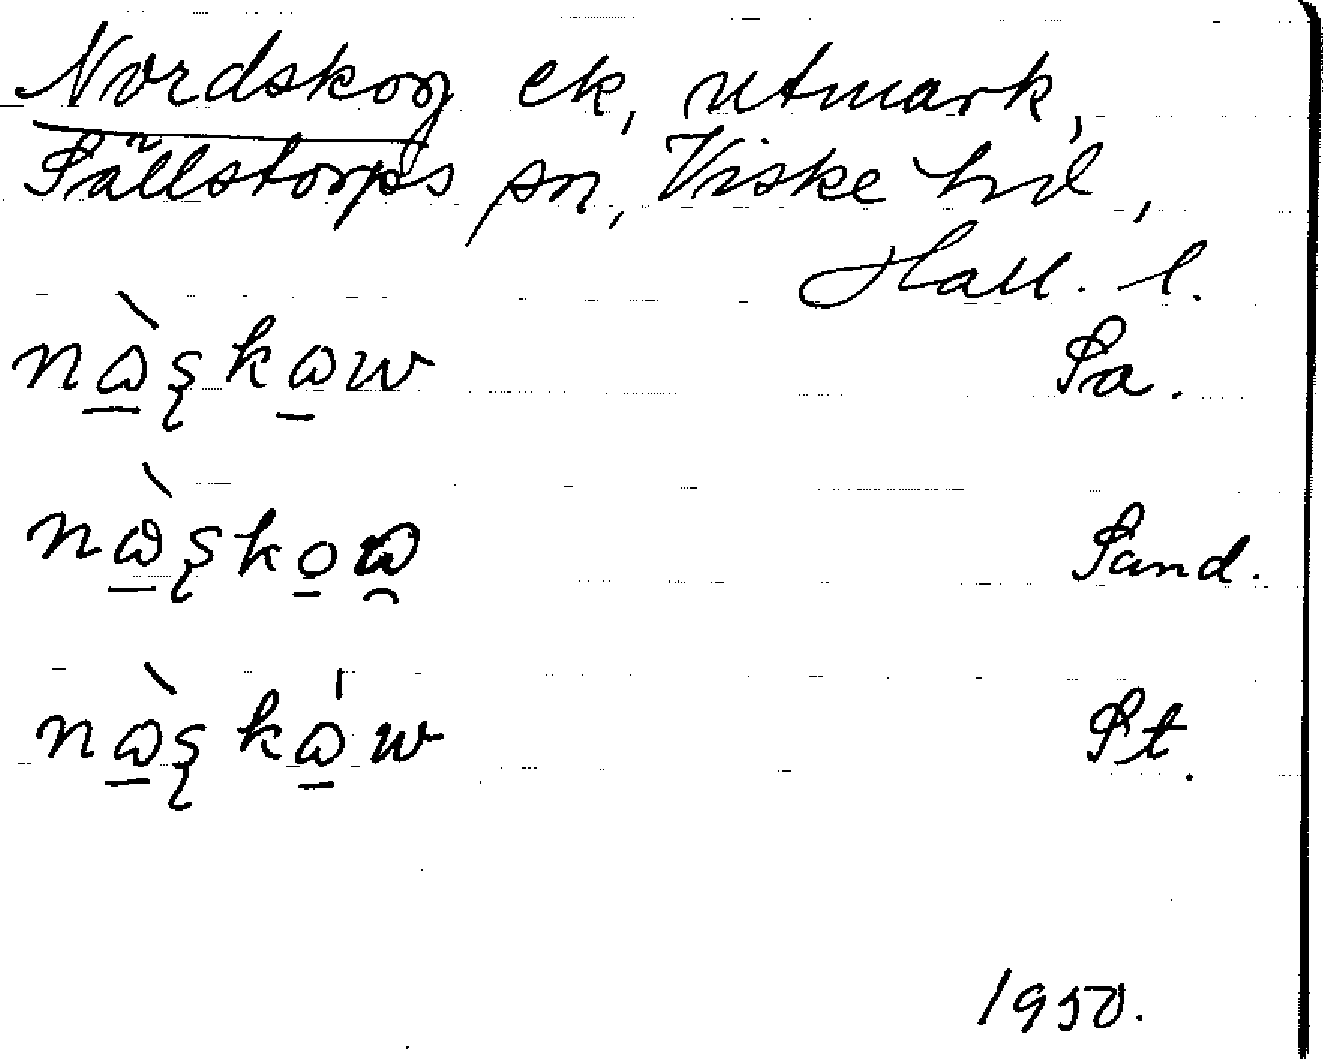 Nordskog ek, utmark,
Sällstorps sn, Viske hd,
Hall. l.
nɷ̱̀ʂkɷ̱w Sa.
nɷ̱̀ʂko̱ɷ̯ Sand.
nɷ̱̀ʂkɷ̱́w St.
1950.